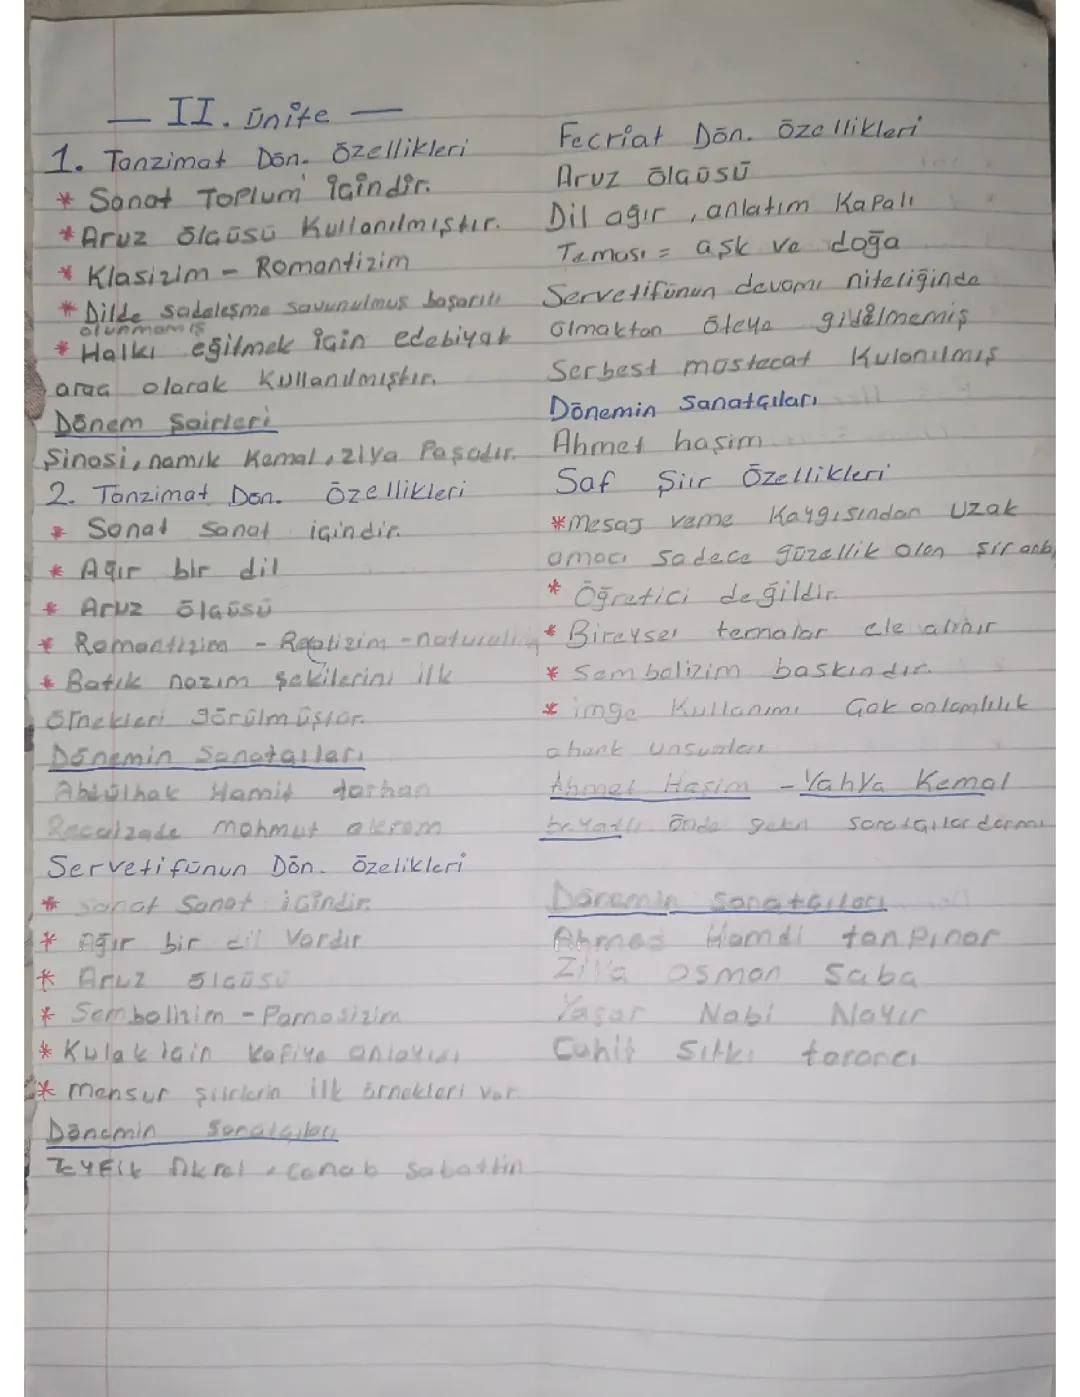 — II. ünite —
1. Tanzimat Dön. Özellikleri
* Sanat Toplum içindir.
* Aruz ölçüsü Kullanılmıştır.
* Klasizim - Romantizim
* Dilde sadeleşme savunulmuş başarılı
olunmamış
* Halkı eğitmek için edebiyat
araç olarak Kullanılmıştır.
Dönem Şairleri
Şinasi, namık Kemal, ziya Paşadır.
2. Tanzimat Dön. Özellikleri
* Sanat sanat içindir.
* Ağır bir dil
* Aruz ölçüsü
* Romantizim - Realizim - naturalizm
* Batılı nazım şekilerini ilk
örnekleri görülmüştür.
Dönemin Sanatçıları
Abdülhak Hamit tarhan
Recaizade mahmut ekrem
Servetifünun Dön. Özelikleri
* sanat Sanat içindir.
* Ağır bir dil Vardır
* Aruz ölçüsü
* Sembolizim - Parnasizim
* Kulak için Kafiye anlayışı
* mensur şiirlerin ilk örnekleri var.
Dönemin Sanatçıları
Tevfik fikret, cenab Sabattin
Fecriat Dön. Özellikleri
Aruz ölçüsü
Dil ağır, anlatım Kapalı
Teması = aşk ve doğa
Servetifünun devamı niteliğinde
olmaktan öteye gidilmemiş
Serbest müstezat Kulanılmış
Dönemin Sanatçıları
Ahmet haşim
Saf Şiir Özellikleri
* Mesaj verme Kaygısından Uzak
amacı sadece güzellik olan şiir anl.
* Öğretici değildir.
* Bireysel temalar ele alınır
* Sembolizim baskındır.
* imge Kullanımı Çok anlamlılık
ahenk unsurları
Ahmet Haşim - Yahya Kemal
beyatlı önde gelen sanatçılardanmı
Dönemin Sanatçıları
Ahmed Hamdi tanpınar
Ziya Osman Saba
Yaşar Nabi Nayır
Cahit Sıtkı tarancı